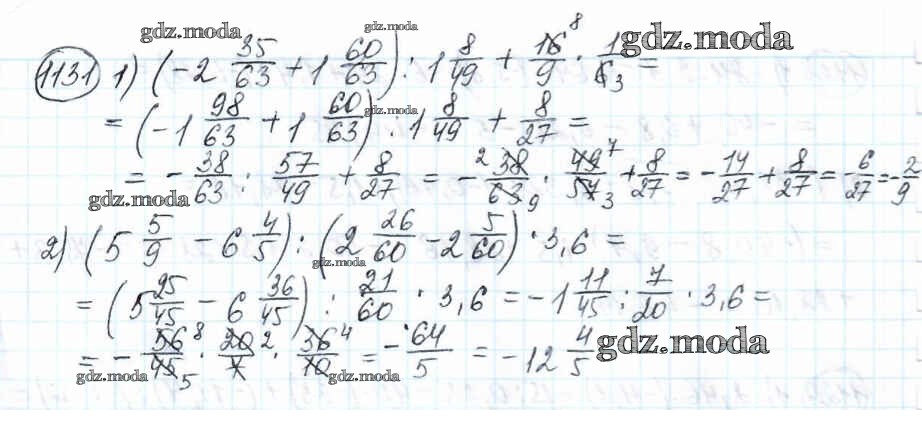 gdz.moda
gdz.moda
1131 1) (-2 35/63 + 1 60/63) : 1 8/49 + 16/9 · 1/6 = 8 3
gdz.moda
= (-1 98/63 + 1 60/63) : 1 8/49 + 8/27 =
= - 38/63 : 57/49 + 8/27 = - 38/63 · 49/57 + 8/27 = - 14/27 + 8/27 = - 6/27 = - 2/9 2 9 7 3
gdz.moda
2) (5 5/9 - 6 4/5) : (2 26/60 - 2 5/60) · 3,6 =
gdz.moda
= (5 25/45 - 6 36/45) : 21/60 · 3,6 = -1 11/45 : 7/20 · 3,6 =
= - 56/45 · 20/7 · 36/10 = - 64/5 = -12 4/5 8 5 2 4
gdz.moda
gdz.moda
gdz.moda